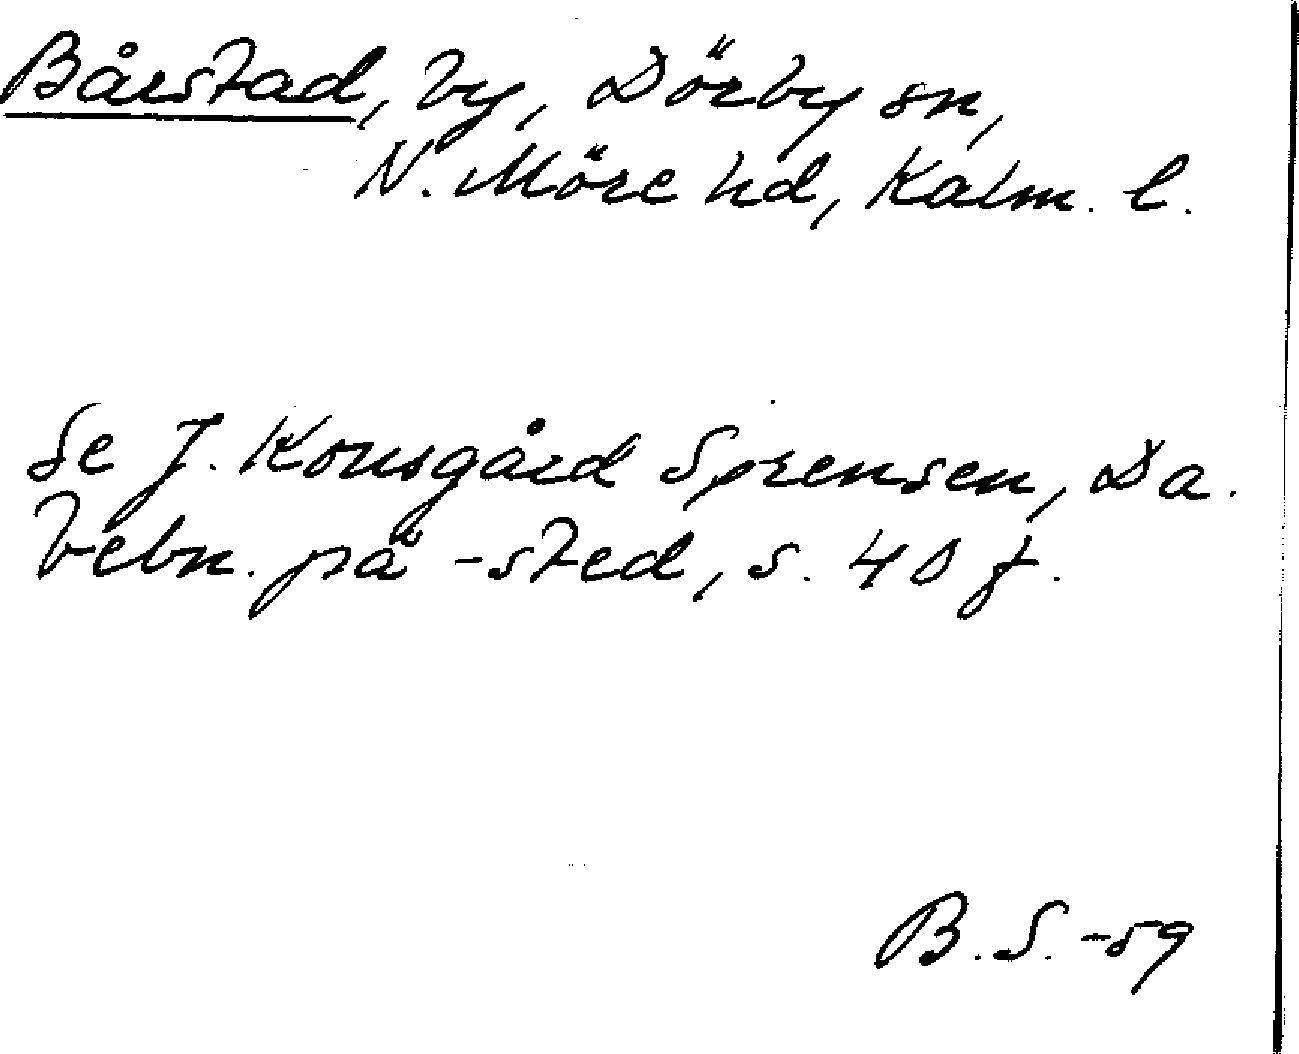 Bårstad, by, Dörby sn,
N. Möre hd, Kalm. l.
Se J. Kousgård Sørensen, Da.
bebn. på -sted, s. 40 f.
B.S. -59